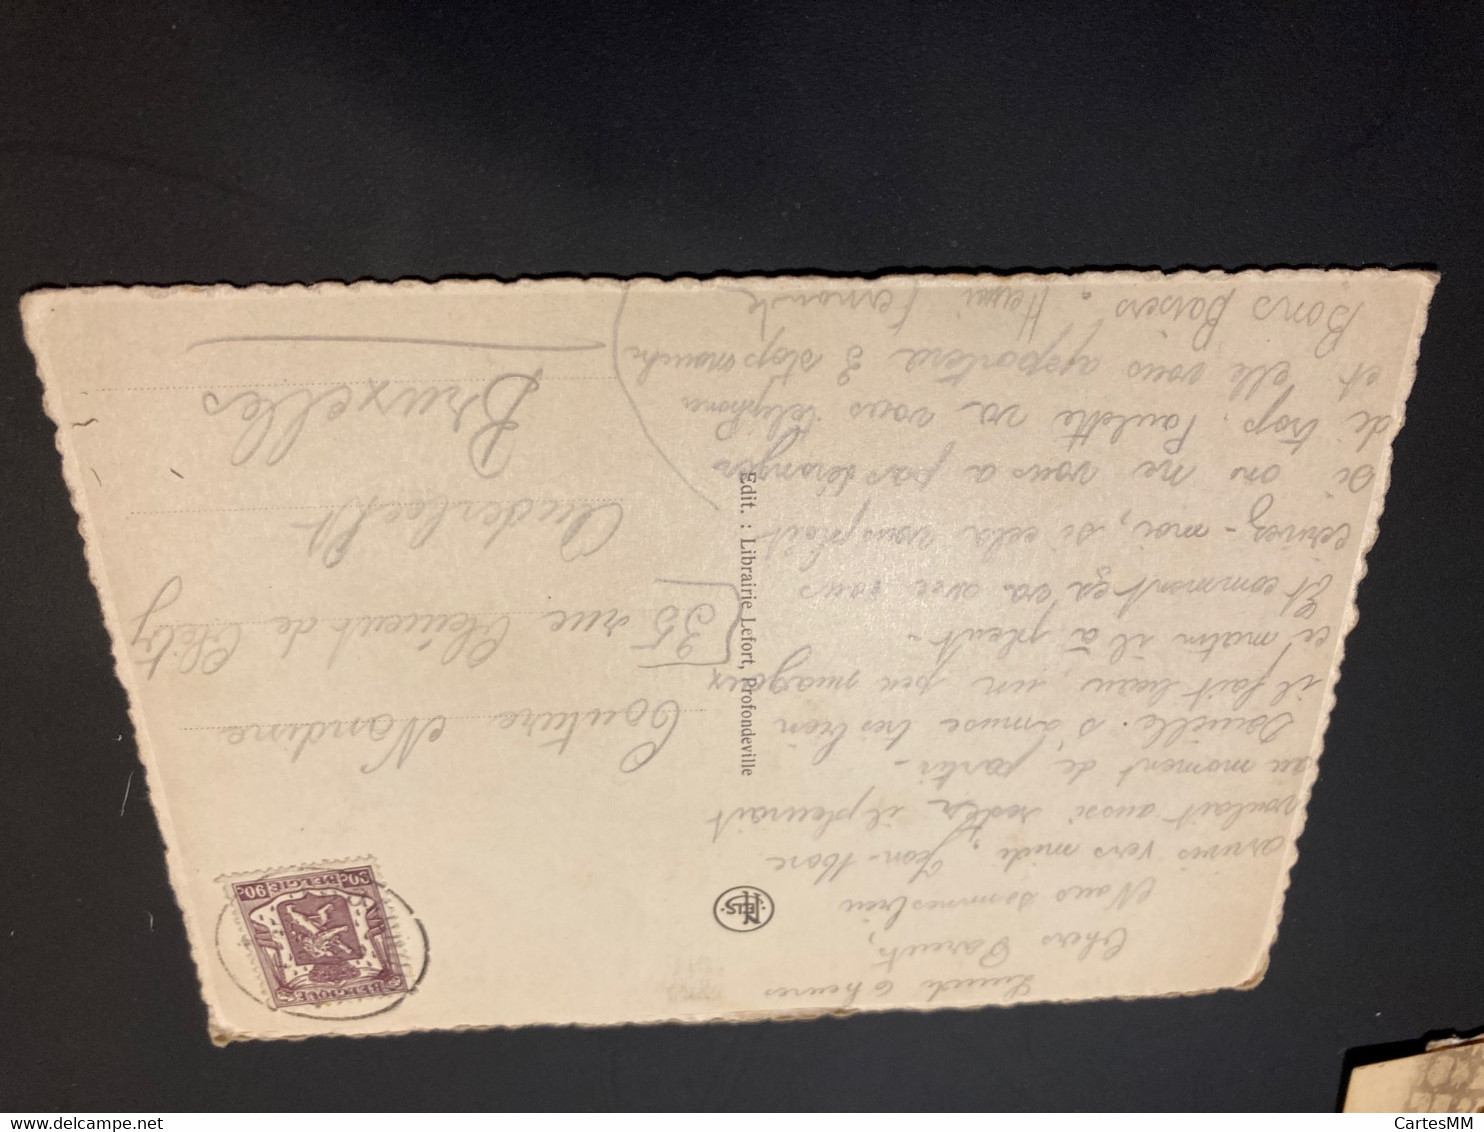 Lundi 6 heures
Chers Parents,
Nous sommes bien
arrivés vers midi, Jean-Marc
voulait aussi rester il pleurait
au moment de partir -
Danielle s'amuse très bien
il fait beau, un peu nuageux
ce matin il a pleut -
Et comment ça va avec vous
écrivez-moi, si cela vous plait
Si on ne vous a pas dérangés
de trop. Paulette va vous téléphoner
et elle vous apportera 3
Bons Baisers. Fernande
Edit. : Librairie Lefort, Profondeville
NELS
BELGIQUE
BELGIË
90c 90c
Couture Nandine
35 rue Clément de Cléty
Anderlecht
Bruxelles
CartesMM